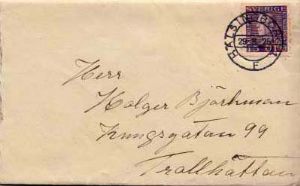 SVERIGE
15
HÄLSINGBORG
29
F
Herr
Holger Björhusen
Kungsgatan 99
Trollhättan